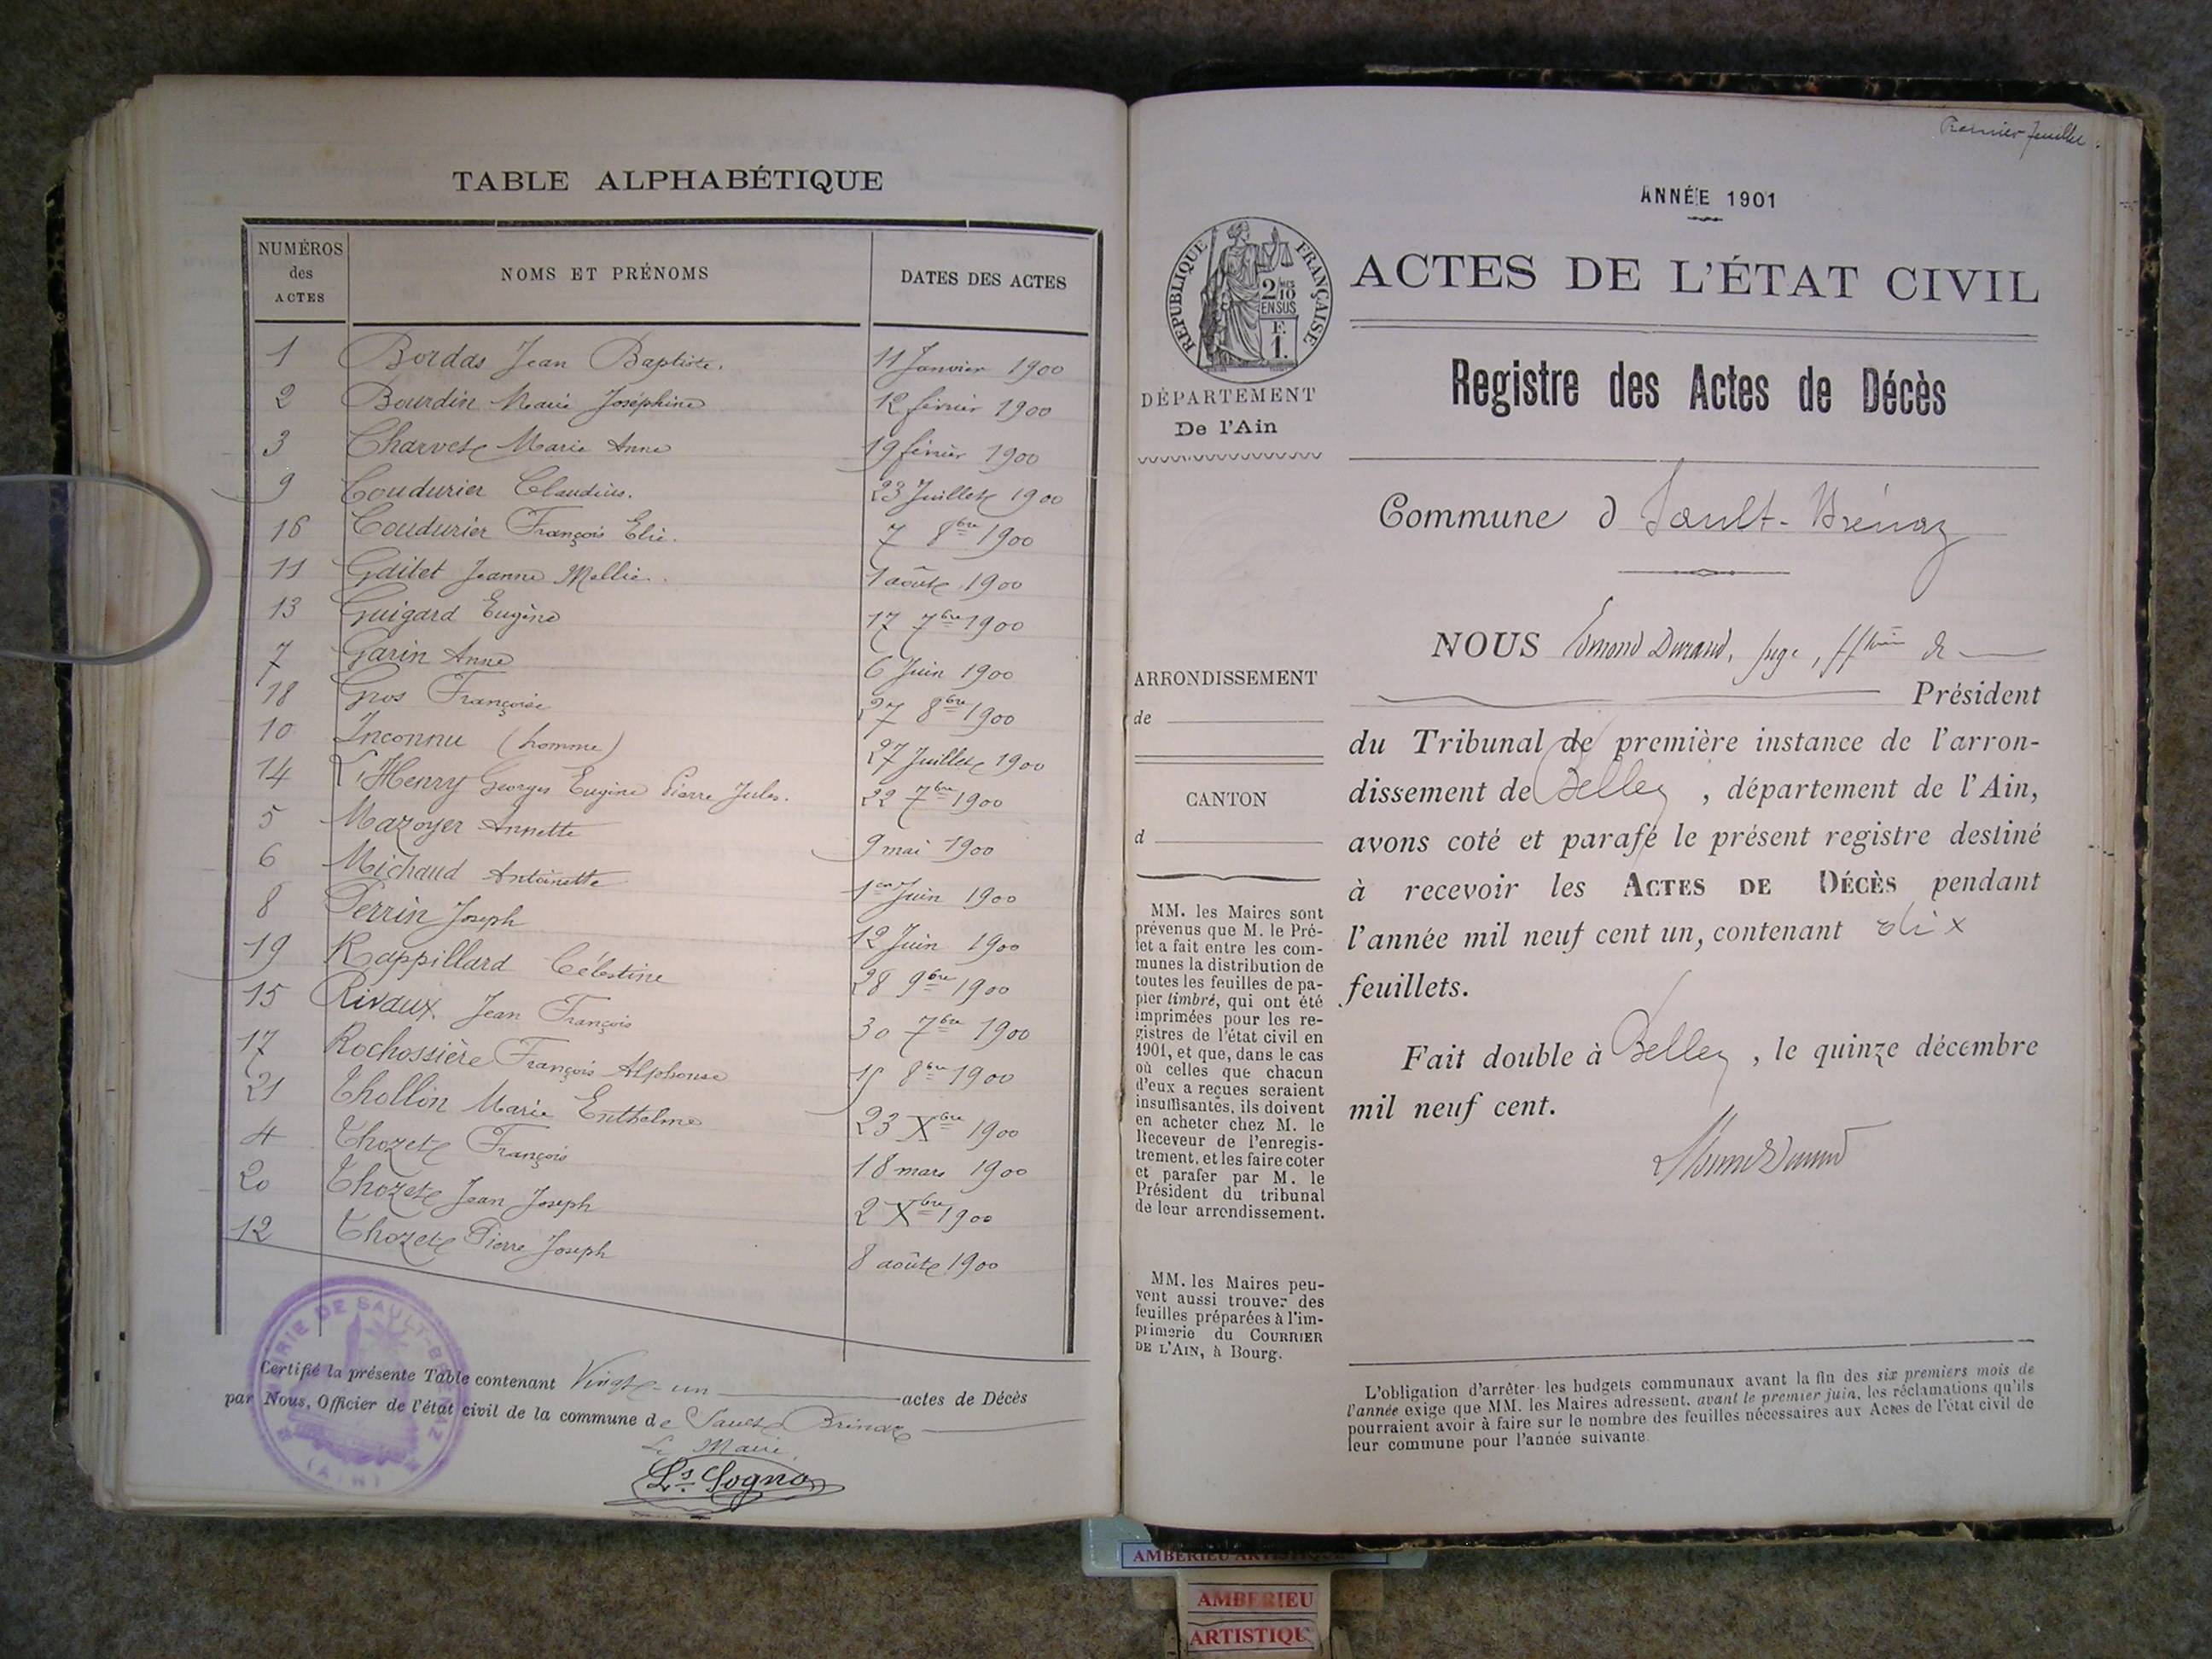 TABLE ALPHABÉTIQUE
NUMÉROS des ACTES
NOMS ET PRÉNOMS
DATES DES ACTES
1 Bordas Jean Baptiste. 11 Janvier 1900
2 Bourdin Marie Joséphine 12 février 1900
3 Charvet Marie Anne 19 février 1900
9 Coudurier Claudius. 23 Juillet 1900
16 Coudurier François Elie. 7 8bre 1900
11 Gaitet Jeanne Mellie. 1 août 1900
13 Guigard Eugène 17 7bre 1900
7 Garin Anne 6 Juin 1900
18 Gros Françoise 27 8bre 1900
10 Inconnu (homme) 27 Juillet 1900
14 L'Henry Georges Eugène Pierre Jules. 22 7bre 1900
5 Mazoyer Annette 9 mai 1900
6 Michaud Antoinette 1er Juin 1900
8 Perrin Joseph 12 Juin 1900
19 Rappillard Célestine 28 9bre 1900
15 Rivaux Jean François 30 7bre 1900
17 Rochossière François Alphonse 8bre 1900
21 Thollon Marie Enthelme 23 Xbre 1900
4 Thozet François 18 mars 1900
20 Thozet Jean Joseph 2 Xbre 1900
12 Thozet Pierre Joseph 8 août 1900
MAIRIE DE SAULT-BRÉNAZ
(AIN)
Certifié la présente Table contenant Vingt-un actes de Décès
par Nous, Officier de l'état civil de la commune de Sault Brénaz
Le Maire
Ls Cogna
Premier feuillet.
ANNÉE 1901
RÉPUBLIQUE FRANÇAISE
2/10 EN SUS
F. 1.
ACTES DE L'ÉTAT CIVIL
Registre des Actes de Décès
DÉPARTEMENT
De l'Ain
Commune d Sault-Brénaz
NOUS Edmond Durand, juge, de
Président
du Tribunal de première instance de l'arron-
dissement de Belley , département de l'Ain,
avons coté et parafé le présent registre destiné
à recevoir les ACTES DE DÉCÈS pendant
l'année mil neuf cent un, contenant dix
feuillets.
Fait double à Belley , le quinze décembre
mil neuf cent.
ARRONDISSEMENT
de
CANTON
d
MM. les Maires sont
prévenus que M. le Pré-
fet a fait entre les com-
munes la distribution de
toutes les feuilles de pa-
pier timbré, qui ont été
imprimées pour les re-
gistres de l'état civil en
1901, et que, dans le cas
où celles que chacun
d'eux a reçues seraient
insuffisantes, ils doivent
en acheter chez M. le
Receveur de l'enregis-
trement, et les faire coter
et parafer par M. le
Président du tribunal
de leur arrondissement.
MM. les Maires peu-
vent aussi trouver des
feuilles préparées à l'im-
primerie du COURRIER
DE L'AIN, à Bourg.
L'obligation d'arrêter les budgets communaux avant la fin des six premiers mois de
l'année exige que MM. les Maires adressent, avant le premier juin, les réclamations qu'ils
pourraient avoir à faire sur le nombre des feuilles nécessaires aux Actes de l'état civil de
leur commune pour l'année suivante.
AMBERIEU ARTISTIQUE
AMBERIEU
ARTISTIQU